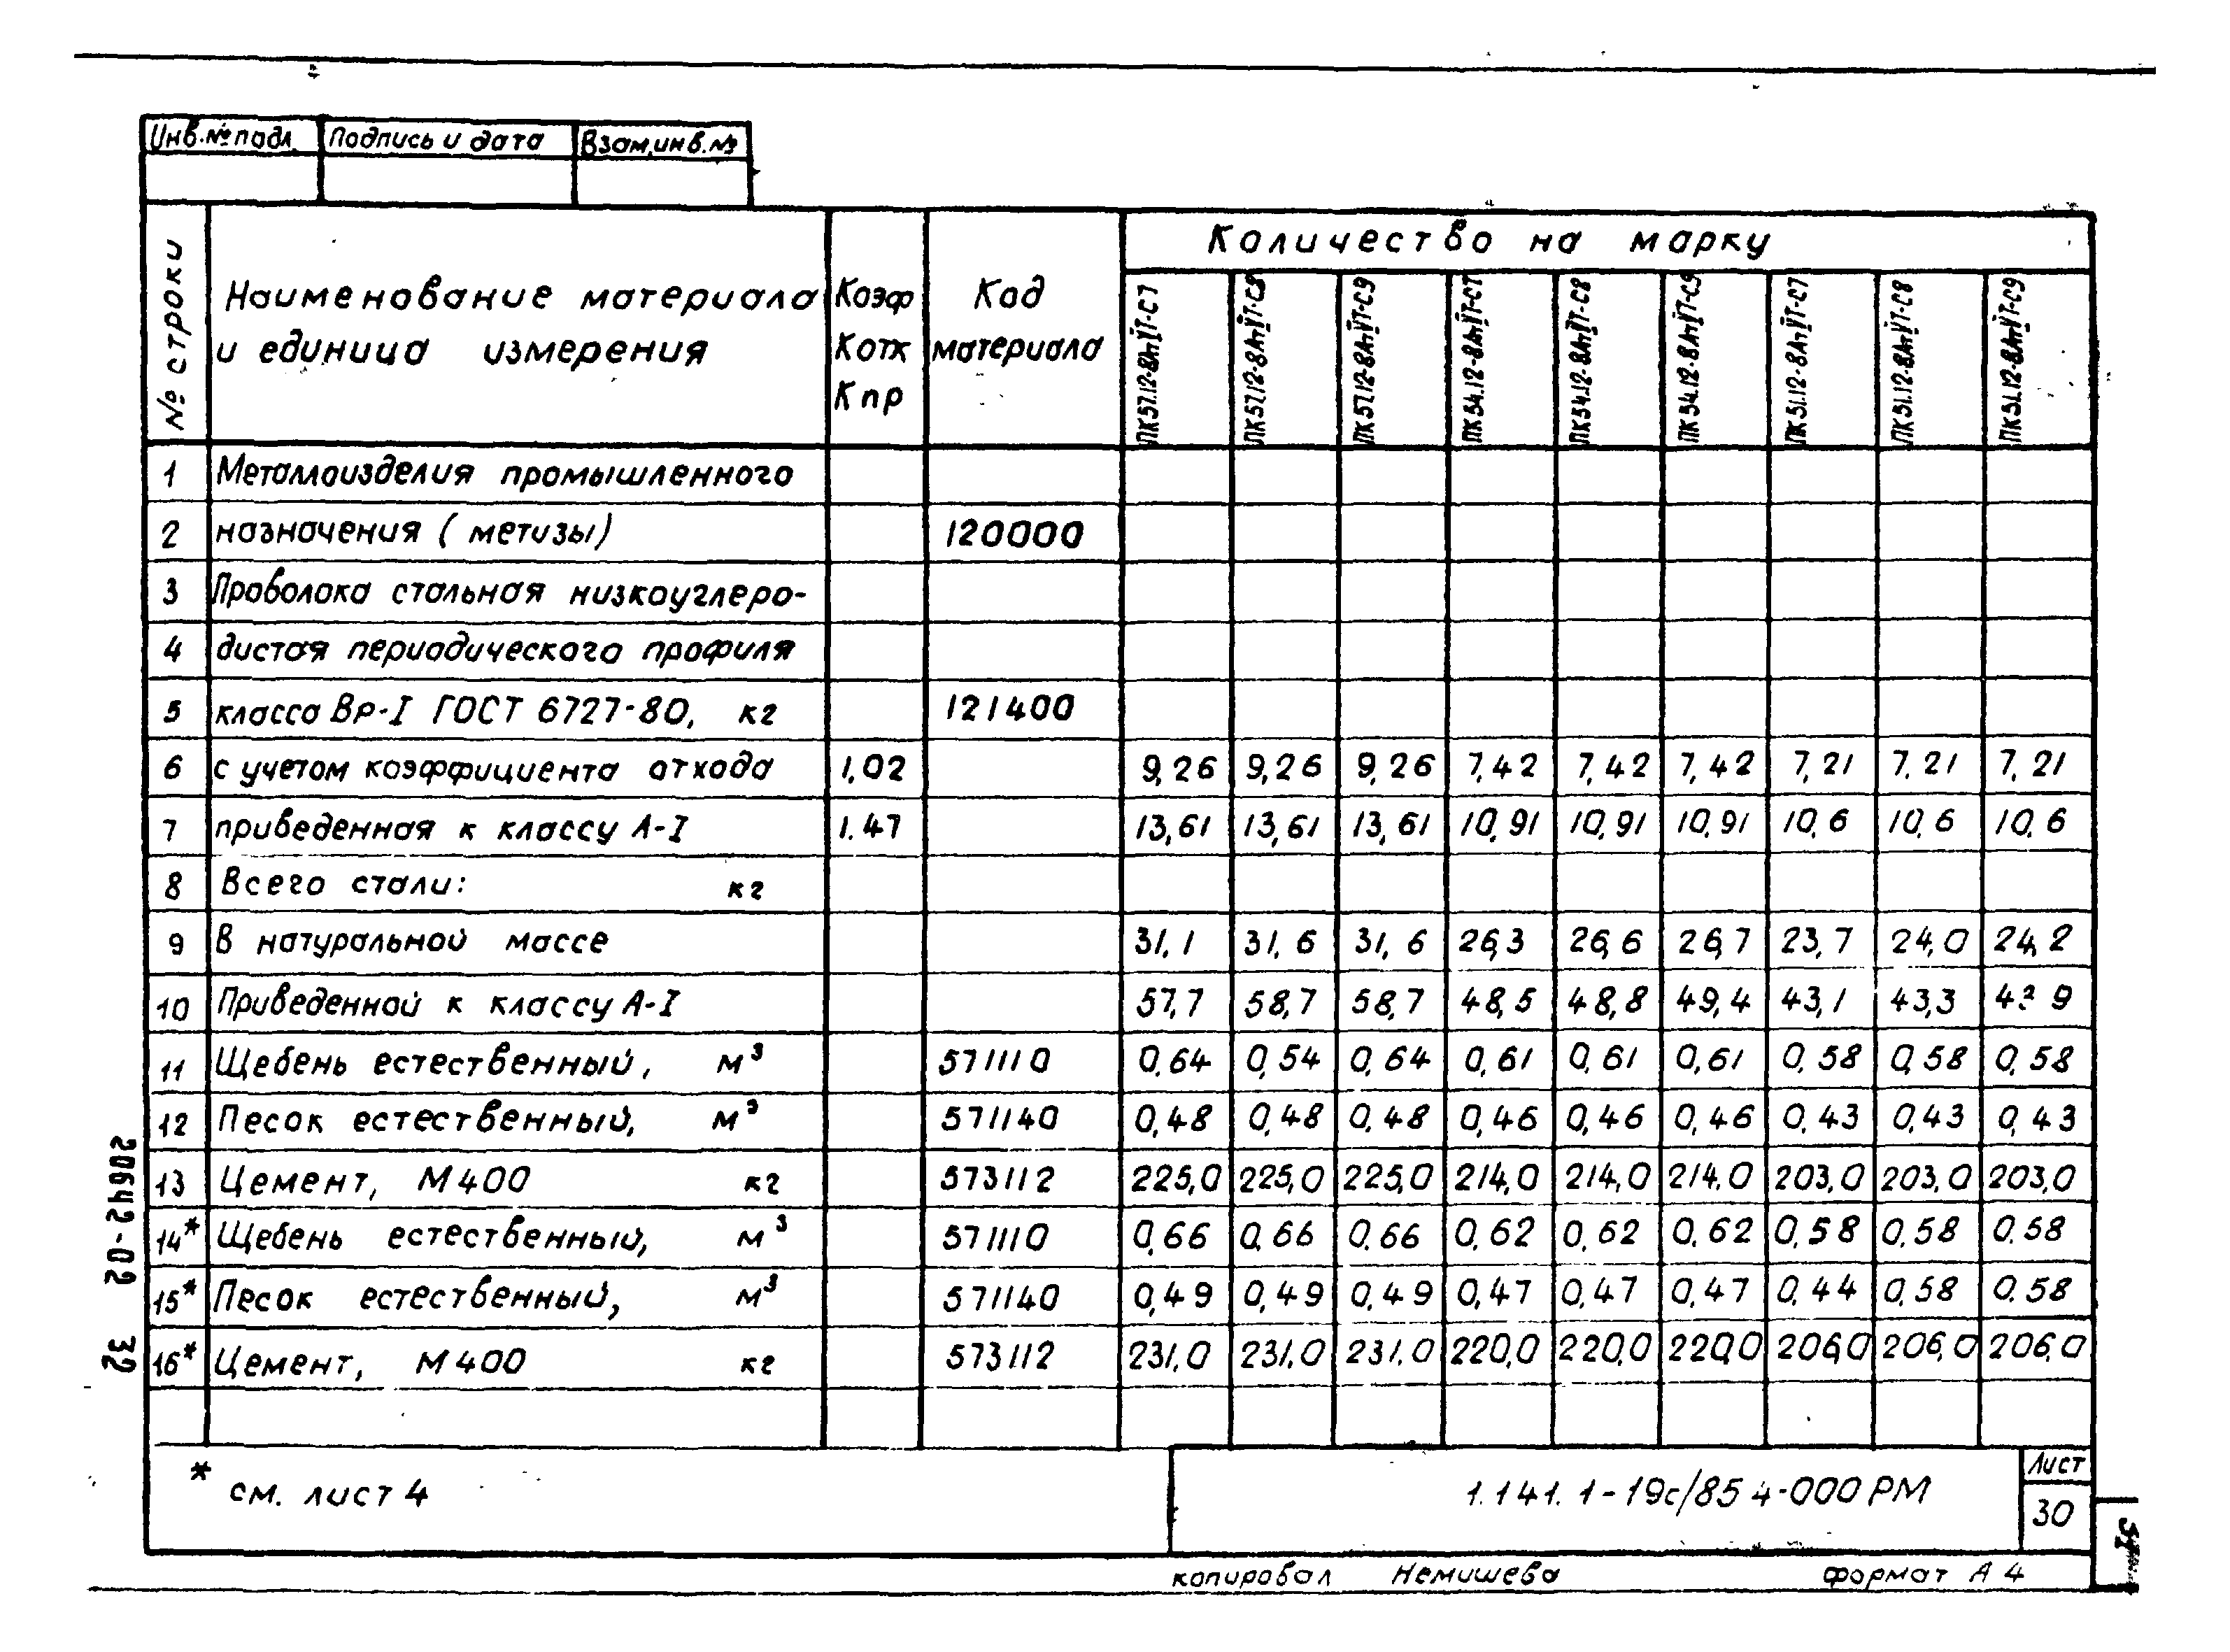 Инв.№ подл. Подпись и дата Взам.инв.№
№ строки
Наименование материала
и единица измерения
Коэф
Котх
Кпр
Код
материала
Количество на марку
ПК57.12-8АтV̅Т-С7 ПК57.12-8АтV̅Т-С8 ПК57.12-8АтV̅Т-С9 ПК54.12-8АтV̅Т-С7 ПК54.12-8АтV̅Т-С8 ПК54.12-8АтV̅Т-С9 ПК51.12-8АтV̅Т-С7 ПК51.12-8АтV̅Т-С8 ПК51.12-8АтV̅Т-С9
1 Металлоизделия промышленного
2 назначения (метизы) 120000
3 Проволока стальная низкоуглеро-
4 дистая периодического профиля
5 класса Вр-I ГОСТ 6727-80, кг 121400
6 с учетом коэффициента отхода 1,02 9,26 9,26 9,26 7,42 7,42 7,42 7,21 7,21 7,21
7 приведенная к классу А-I 1.47 13,61 13,61 13,61 10,91 10,91 10,91 10,6 10,6 10,6
8 Всего стали: кг
9 В натуральной массе 31,1 31,6 31,6 26,3 26,6 26,7 23,7 24,0 24,2
10 Приведенной к классу А-I 57,7 58,7 58,7 48,5 48,8 49,4 43,1 43,3
11 Щебень естественный, м³ 571110 0,64 0,54 0,64 0,61 0,61 0,61 0,58 0,58 0,58
12 Песок естественный, м³ 571140 0,48 0,48 0,48 0,46 0,46 0,46 0,43 0,43 0,43
13 Цемент, М400 кг 573112 225,0 225,0 225,0 214,0 214,0 214,0 203,0 203,0 203,0
14* Щебень естественный, м³ 571110 0,66 0,66 0.66 0,62 0,62 0,62 0,58 0,58 0.58
15* Песок естественный, м³ 571140 0,49 0,49 0,49 0,47 0,47 0,47 0,44 0,58 0.58
16* Цемент, М400 кг 573112 231,0 231,0 231,0 220,0 220,0 220,0 206,0 206,0 206,0
20642-02 32
* см. лист 4
1.141.1-19с/85 4-000 РМ
Лист
30
31
копировал Немишева формат А4